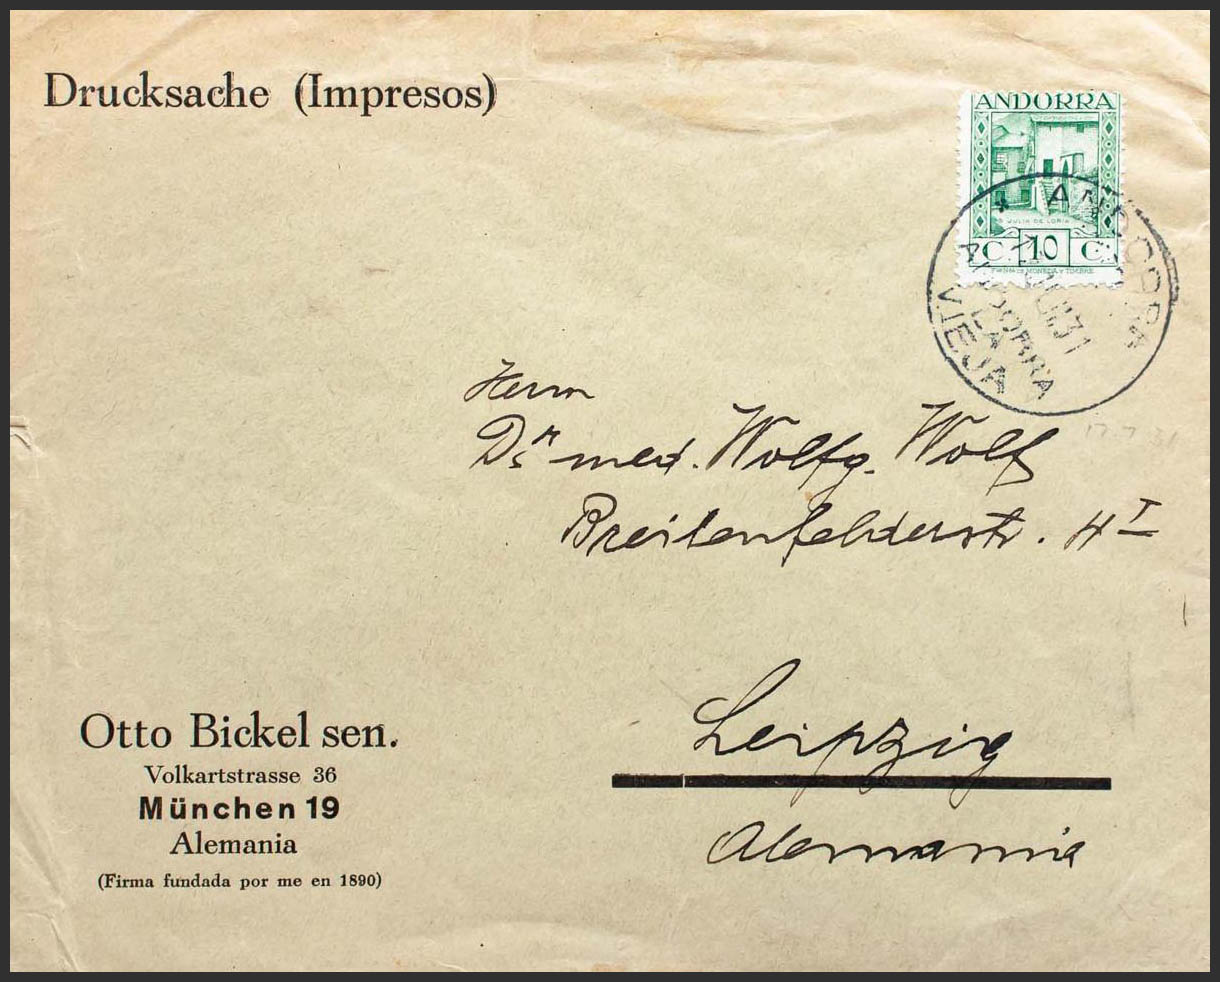 Drucksache (Impresos)
ANDORRA
JULIA DE LORIA
C. 10 C.
ANDORRA
JUL 31
ANDORRA
LA
VIEJA
17.7.31
Herrn
Dr med. Wolfg. Wolf
Breitenfelderstr. 4 I
Leipzig
Alemania
Otto Bickel sen.
Volkartstrasse 36
München 19
Alemania
(Firma fundada por me en 1890)